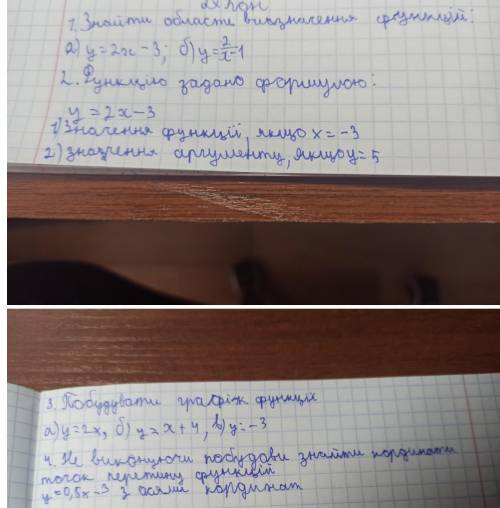 1. Знайти області визначення функцій:
а) y = 2x - 3; б) y = 2/x-1
2. Функцію задано формулою:
y = 2x - 3
1) Значення функції, якщо x = -3
2) значення аргументу, якщо y = 5
3. Побудувати графік функцій
а) y = 2x, б) y = x + 4, в) y = -3
4. Не виконуючи побудови знайти кординати
точок перетину функцій
y = 0,5x - 3 з осями кординат